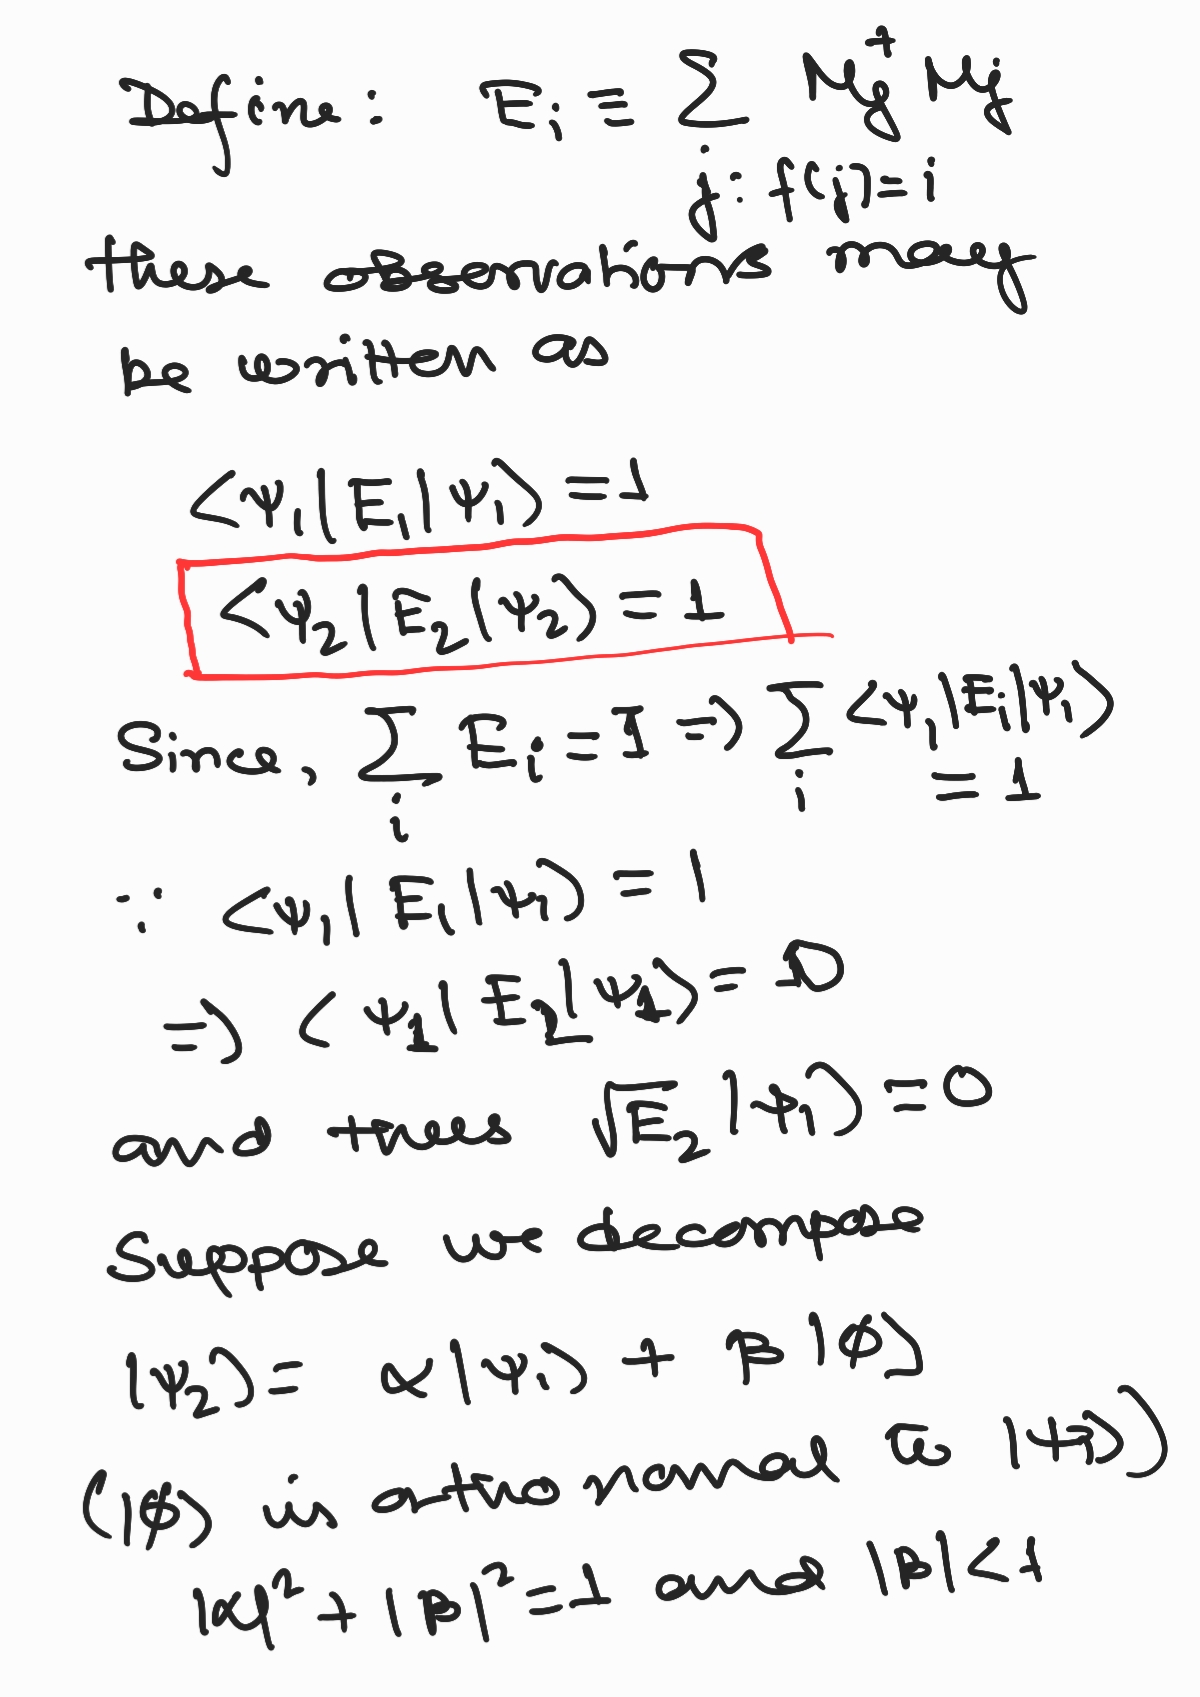 Define: E_i ≡ Σ M_j† M_j
j: f(j)=i
these observations may
be written as
<ψ_1|E_1|ψ_1> = 1
<ψ_2|E_2|ψ_2> = 1
Since, Σ E_i = I => Σ <ψ_1|E_i|ψ_1>
i i = 1
∵ <ψ_1|E_1|ψ_1> = 1
=> <ψ_1|E_2|ψ_1> = 0
and thus √E_2 |ψ_1> = 0
Suppose we decompose
|ψ_2> = α|ψ_1> + β|ϕ>
(|ϕ> is orthonormal to |ψ_1>)
|α|² + |β|² = 1 and |β| < 1